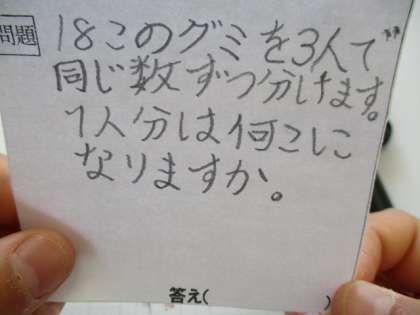 問題
18このグミを3人で
同じ数ずつ分けます。
1人分は何こに
なりますか。
答え( )